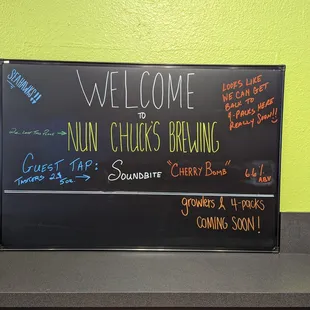 SEAHAWKS!!
WELCOME
TO
NUN CHUCK'S BREWING
LOOKS LIKE
WE CAN GET
BACK TO
4-PACKS HERE
REALLY SOON!!
GUEST TAP:
TASTERS 2$
5oz.
SOUNDBITE "CHERRY BOMB" 6.6%
ABV
growlers & 4-packs
COMING SOON!